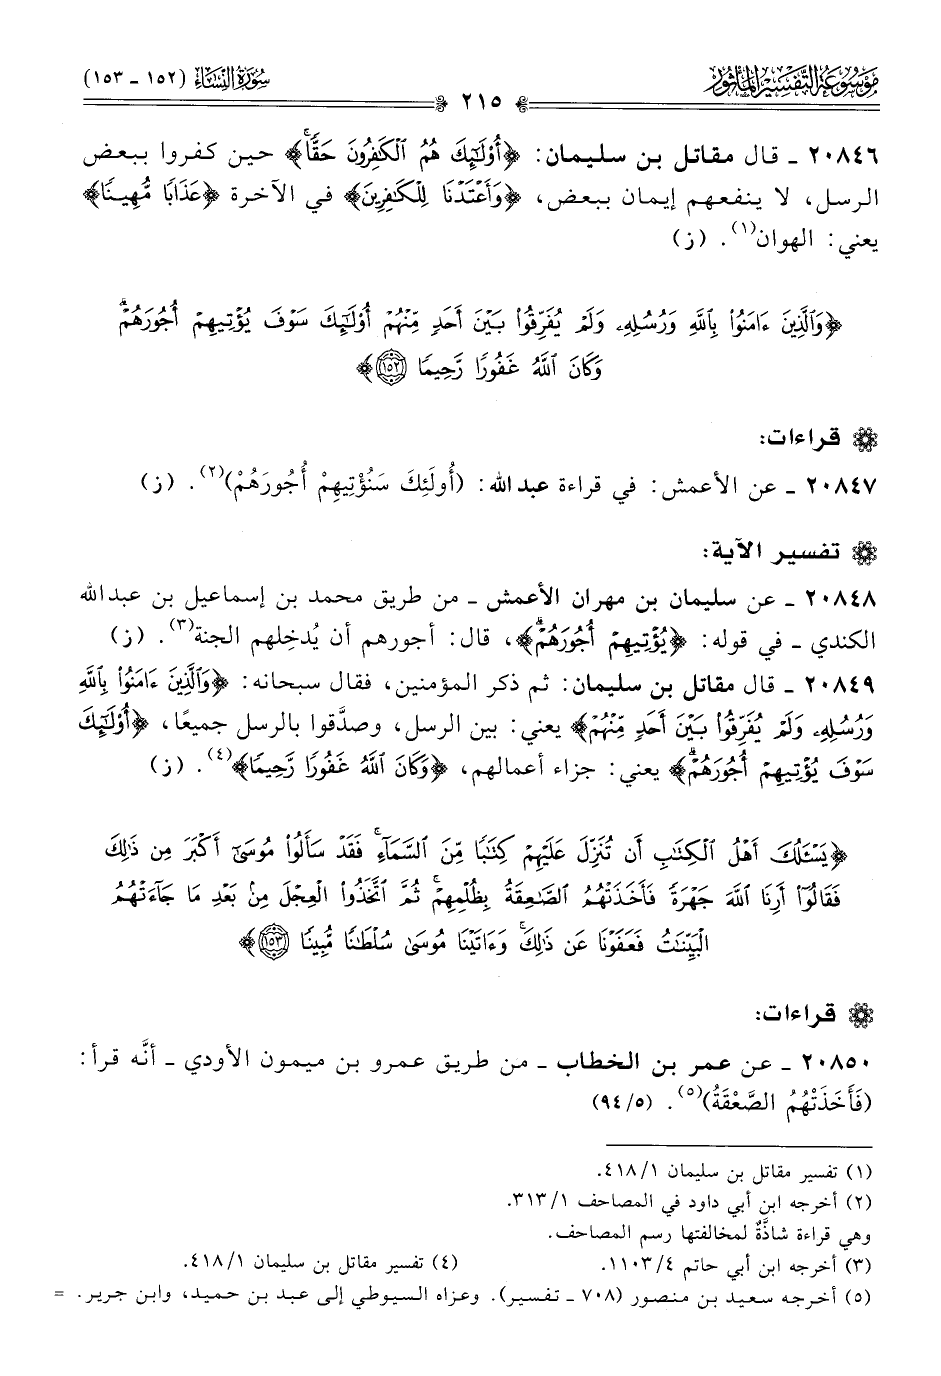 موسوعة التفسير المأثور
سورة النساء (١٥٢ - ١٥٣)
٢١٥
٢٠٨٤٦ ـ قال مقاتل بن سليمان: ﴿أُوْلَٰٓئِكَ هُمُ ٱلۡكَٰفِرُونَ حَقّٗاۚ﴾ حين كفروا ببعض
الرسل، لا ينفعهم إيمان ببعض، ﴿وَأَعۡتَدۡنَا لِلۡكَٰفِرِينَ﴾ في الآخرة ﴿عَذَابٗا مُّهِينٗا﴾
يعني: الهوان(١). (ز)
﴿وَٱلَّذِينَ ءَامَنُواْ بِٱللَّهِ وَرُسُلِهِۦ وَلَمۡ يُفَرِّقُواْ بَيۡنَ أَحَدٖ مِّنۡهُمۡ أُوْلَٰٓئِكَ سَوۡفَ يُؤۡتِيهِمۡ أُجُورَهُمۡۗ
وَكَانَ ٱللَّهُ غَفُورٗا رَّحِيمٗا ١٥٢﴾
قراءات:
٢٠٨٤٧ ـ عن الأعمش: في قراءة عبد الله: (أُولَئِكَ سَنُؤْتِيهِمْ أُجُورَهُمْ)(٢). (ز)
تفسير الآية:
٢٠٨٤٨ ـ عن سليمان بن مهران الأعمش ـ من طريق محمد بن إسماعيل بن عبد الله
الكندي ـ في قوله: ﴿يُؤۡتِيهِمۡ أُجُورَهُمۡۗ﴾، قال: أجورهم أن يُدخِلهم الجنة(٣). (ز)
٢٠٨٤٩ ـ قال مقاتل بن سليمان: ثم ذكر المؤمنين، فقال سبحانه: ﴿وَٱلَّذِينَ ءَامَنُواْ بِٱللَّهِ
وَرُسُلِهِۦ وَلَمۡ يُفَرِّقُواْ بَيۡنَ أَحَدٖ مِّنۡهُمۡ﴾ يعني: بين الرسل، وصدَّقوا بالرسل جميعًا، ﴿أُوْلَٰٓئِكَ
سَوۡفَ يُؤۡتِيهِمۡ أُجُورَهُمۡۗ﴾ يعني: جزاء أعمالهم، ﴿وَكَانَ ٱللَّهُ غَفُورٗا رَّحِيمٗا﴾(٤). (ز)
﴿يَسۡـَٔلُكَ أَهۡلُ ٱلۡكِتَٰبِ أَن تُنَزِّلَ عَلَيۡهِمۡ كِتَٰبٗا مِّنَ ٱلسَّمَآءِۚ فَقَدۡ سَأَلُواْ مُوسَىٰٓ أَكۡبَرَ مِن ذَٰلِكَ
فَقَالُوٓاْ أَرِنَا ٱللَّهَ جَهۡرَةٗ فَأَخَذَتۡهُمُ ٱلصَّٰعِقَةُ بِظُلۡمِهِمۡۚ ثُمَّ ٱتَّخَذُواْ ٱلۡعِجۡلَ مِنۢ بَعۡدِ مَا جَآءَتۡهُمُ
ٱلۡبَيِّنَٰتُ فَعَفَوۡنَا عَن ذَٰلِكَۚ وَءَاتَيۡنَا مُوسَىٰ سُلۡطَٰنٗا مُّبِينٗا ١٥٣﴾
قراءات:
٢٠٨٥٠ ـ عن عمر بن الخطاب ـ من طريق عمرو بن ميمون الأودي ـ أنَّه قرأ:
(فَأَخَذَتْهُمُ الصَّعْقَةُ)(٥). (٩٤/٥)
(١) تفسير مقاتل بن سليمان ٤١٨/١.
(٢) أخرجه ابن أبي داود في المصاحف ٣١٣/١.
وهي قراءة شاذَّةٌ لمخالفتها رسم المصاحف.
(٣) أخرجه ابن أبي حاتم ١١٠٣/٤. (٤) تفسير مقاتل بن سليمان ٤١٨/١.
(٥) أخرجه سعيد بن منصور (٧٠٨ ـ تفسير). وعزاه السيوطي إلى عبد بن حميد، وابن جرير. =